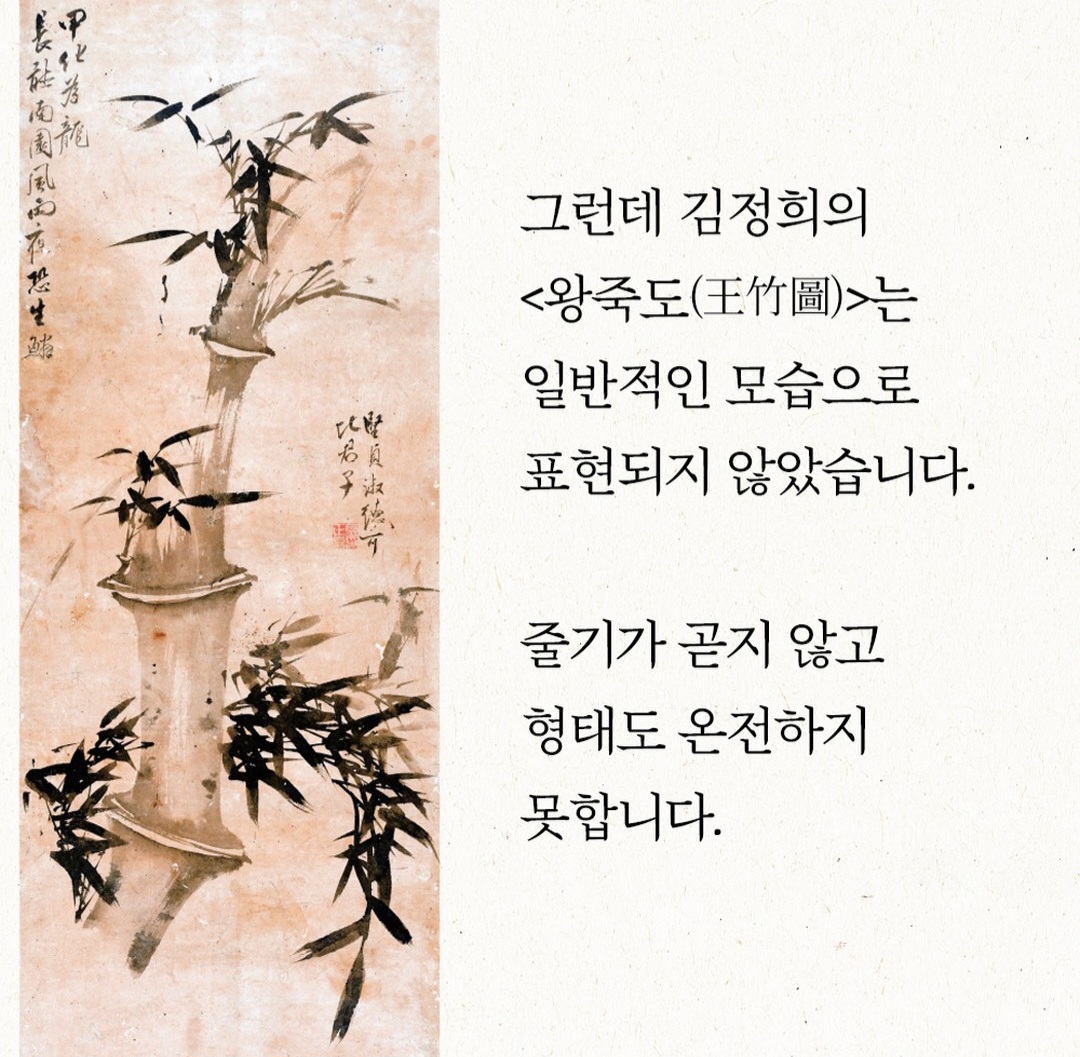 長聽南園風雨夜恐生鱗
甲化為龍
堅貞淑德可
比君子
그런데 김정희의
<왕죽도(王竹圖)>는
일반적인 모습으로
표현되지 않았습니다.
줄기가 곧지 않고
형태도 온전하지
못합니다.